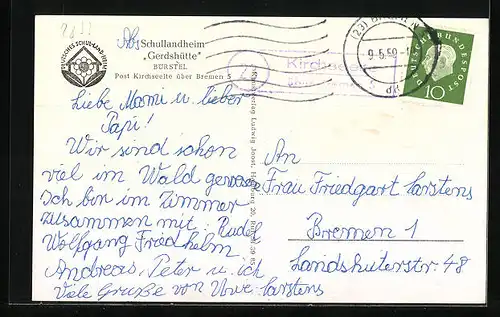 Abs Schullandheim
"Gerdshütte"
BÜRSTEL
Post Kirchseelte über Bremen 5
DEUTSCHES SCHULLANDHEIM
Liebe Mami u. lieber
Papi!
Wir sind schon
viel im Wald gewesen
Ich bin im Zimmer
zusammen mit: Rudel
Wolfgang Friedhelm
Andreas, Peter u. ich
Viele Grüße von Uwe Carstens
Verlag Ludwig
23
Kirchseelte
über
(23)
9.5.59
DEUTSCHE BUNDESPOST
10
An
Frau Friedgart Carstens
Bremen 1
Landshuterstr 48